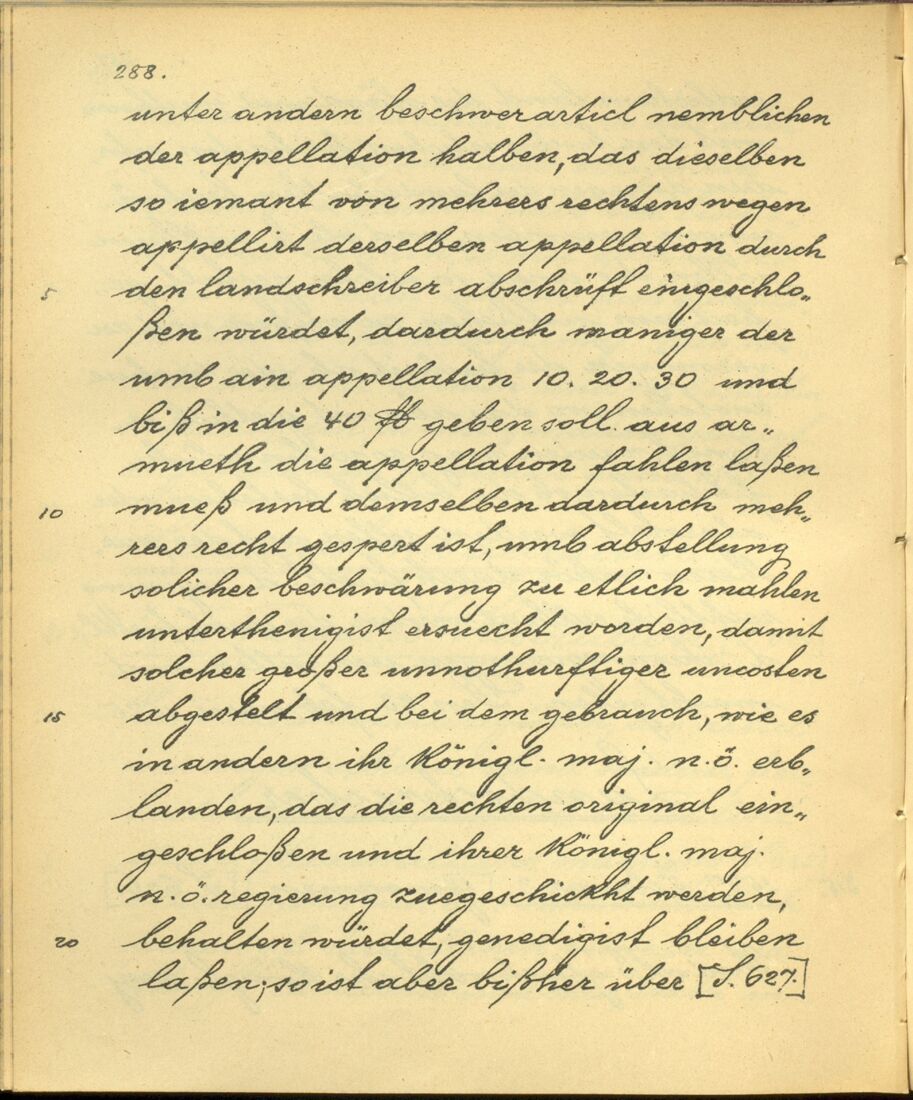 288.
unter andern beschwerarticl nemblichen
der appellation halben, das dieselben
so iemant von mehrers rechtens wegen
appellirt derselben appellation durch
5 den landschreiber abschrüft eingeschlo„
ßen würdet, dardurch maniger der
umb ain appellation 10. 20. 30 und
biß in die 40 ℔ geben soll. aus ar„
mueth die appellation fahlen laßen
10 mueß und demselben dardurch meh„
rers recht gespert ist, umb abstellung
solicher beschwärung zu etlich mahlen
unterthenigist ersuecht worden, damit
solcher großer unnothurftiger uncosten
15 abgestelt und bei dem gebrauch, wie es
in andern ihr königl. maj. n.ö. erb„
landen, das die rechten original ein„
geschloßen und ihrer königl. maj.
n.ö. regierung zuegeschickht werden,
20 behalten würdet, genedigist bleiben
laßen; so ist aber bißher über [S. 627.]